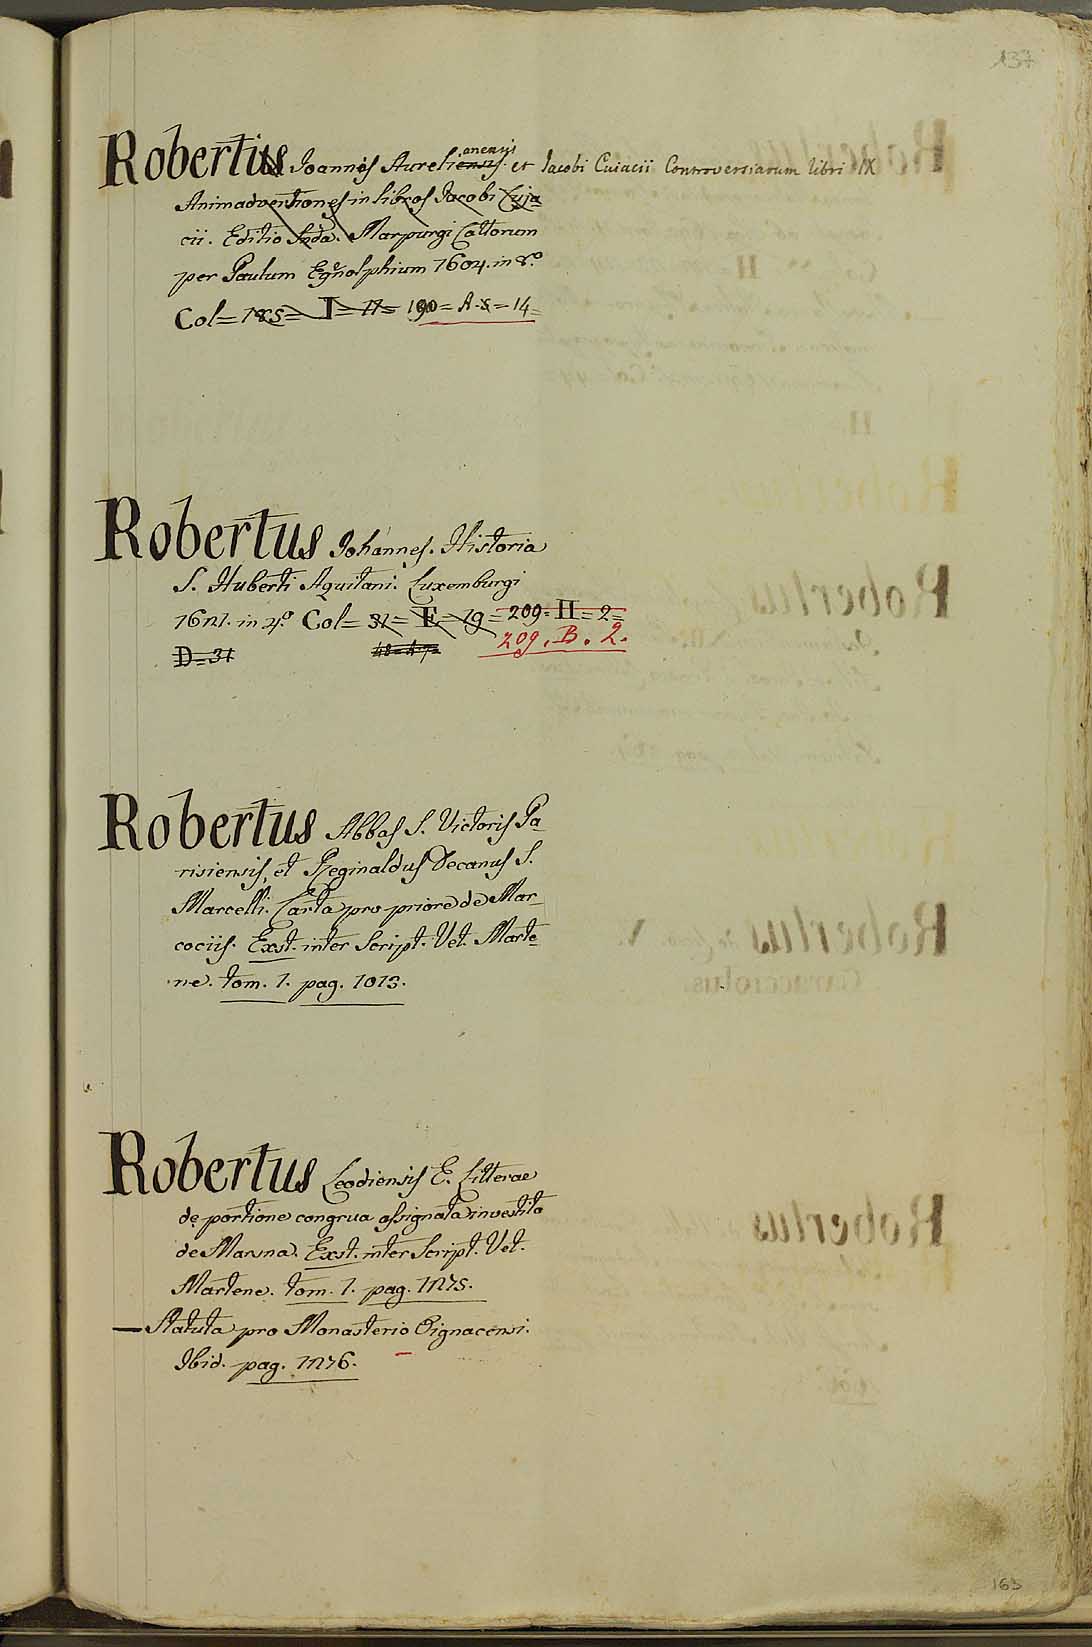 137
Robertus Joannes Aurelianensis. et Jacobi Cuiacii Controversiarum libri IX
Animadvertiones in libros Jacobi Cuja
cii. Editio 2nda. Marpurgi Cattorum
per Paulum Egenolphium 1604. in 8.o
Col= 185= I= 17= 190= A. 8= 14=
Robertus Johannes. Historia
S. Huberti Aquitani. Luxemburgi
1621. in 4.o Col= 31= E= 19= 209= II= 2=
D=31 48=A=7= 209. B. 2.
Robertus Abbas S. Victoris Pa=
risiensis, et Reginaldus Decanus S.
Marcelli. Carta pro priore de Mar=
cociis. Exst. inter Script. Vet. Marte=
ne. tom. 1. pag. 1013.
Robertus Leodiensis E. Litterae
de portione congrua assignata investito
de Maruna. Exst. inter Script. Vet.
Martene. tom. 1. pag. 1275.
— Statuta pro Monasterio Oignacensi.
Ibid. pag. 1276.
163